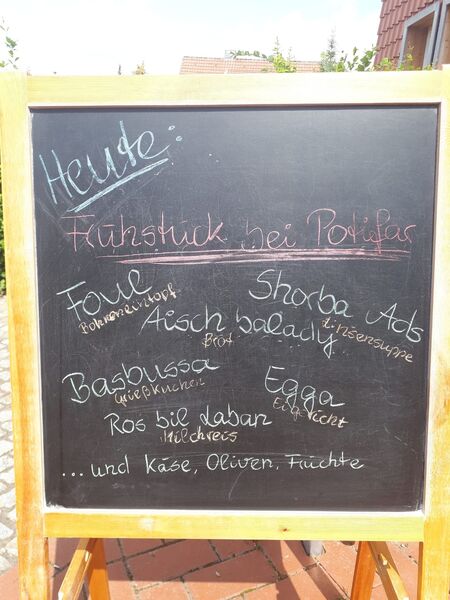 Heute:
Frühstück bei Potifar
Foul
Bohneneintopf
Shorba Ads
Linsensuppe
Aisch balady
Brot
Basbussa
Grießkuchen
Egga
Eigericht
Ros bil Laban
Milchreis
... und Käse, Oliven, Früchte